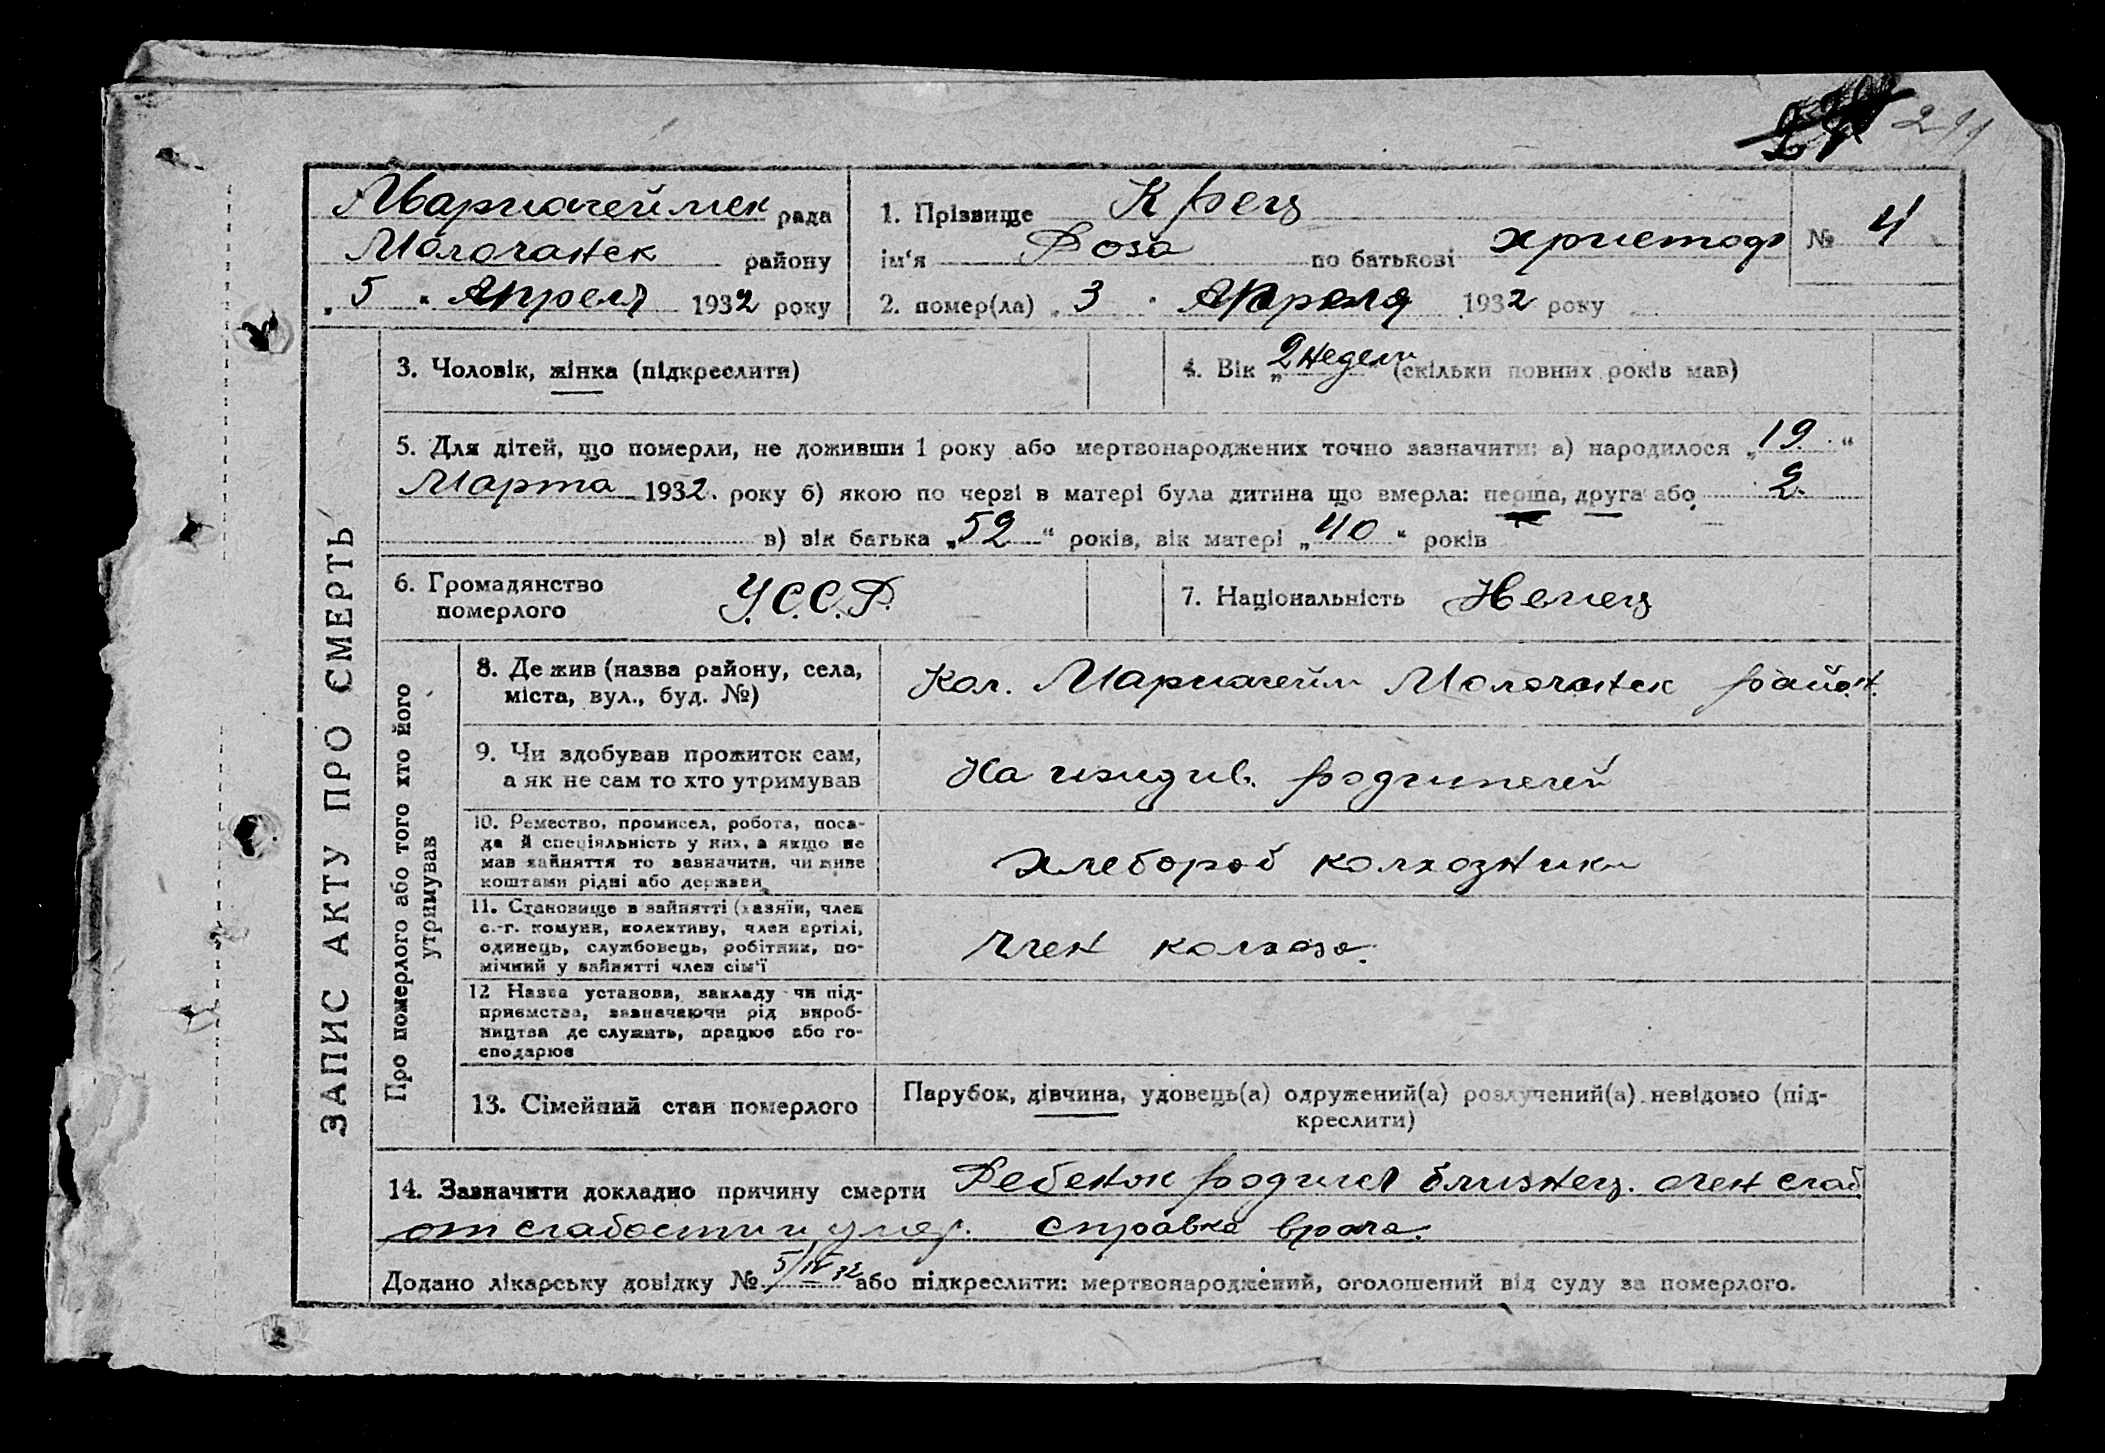 211
Мариагеймск рада
Молочанск району
„ 5 “ Апреля 1932 року
1. Прізвище Крец
ім'я Роза по батькові Христоф
№ 4
2. помер(ла) „ 3 “ Апреля 1932 року
ЗАПИС АКТУ ПРО СМЕРТЬ
3. Чоловік, жінка (підкреслити)
4. Вік „2 недели“ (скільки повних років мав)
5. Для дітей, що померли, не доживши 1 року або мертвонароджених точно зазначити: а) народилося „19“
Марта 1932. року б) якою по черзі в матері була дитина що вмерла: перша, друга або 2.
в) вік батька „52“ років, вік матері „40“ років
6. Громадянство
померлого
У.С.С.Р.
7. Національність Немец
Про померлого або того хто його
утримував
8. Де жив (назва району, села,
міста, вул., буд. №)
Кол. Мариагейм Молочанск район.
9. Чи здобував прожиток сам,
а як не сам то хто утримував
На иждив. родителей
10. Ремество, промисел, робота, поса-
да й спеціяльність у них, а якщо не
мав зайняття то зазначити, чи живе
коштами рідні або держави
Хлебороб колхозники
11. Становище в зайнятті (хазяїн, член
с.-г. комуни, колективу, член артілі,
одинець, службовець, робітник, по-
мічний у зайнятті член сім'ї
Член колхоза.
12 Назва установи, закладу чи під-
приємства, зазначаючи рід вироб-
ництва де служить, працює або го-
сподарює
13. Сімейний стан померлого
Парубок, дівчина, удовець(а) одружений(а) розлучений(а) невідомо (під-
креслити)
14. Зазначити докладно причину смерти Ребенок родился близнец. очен слаб
от слабости и умер. справка врача.
Додано лікарську довідку № 5/IV 32 або підкреслити: мертвонароджений, оголошений від суду за померлого.